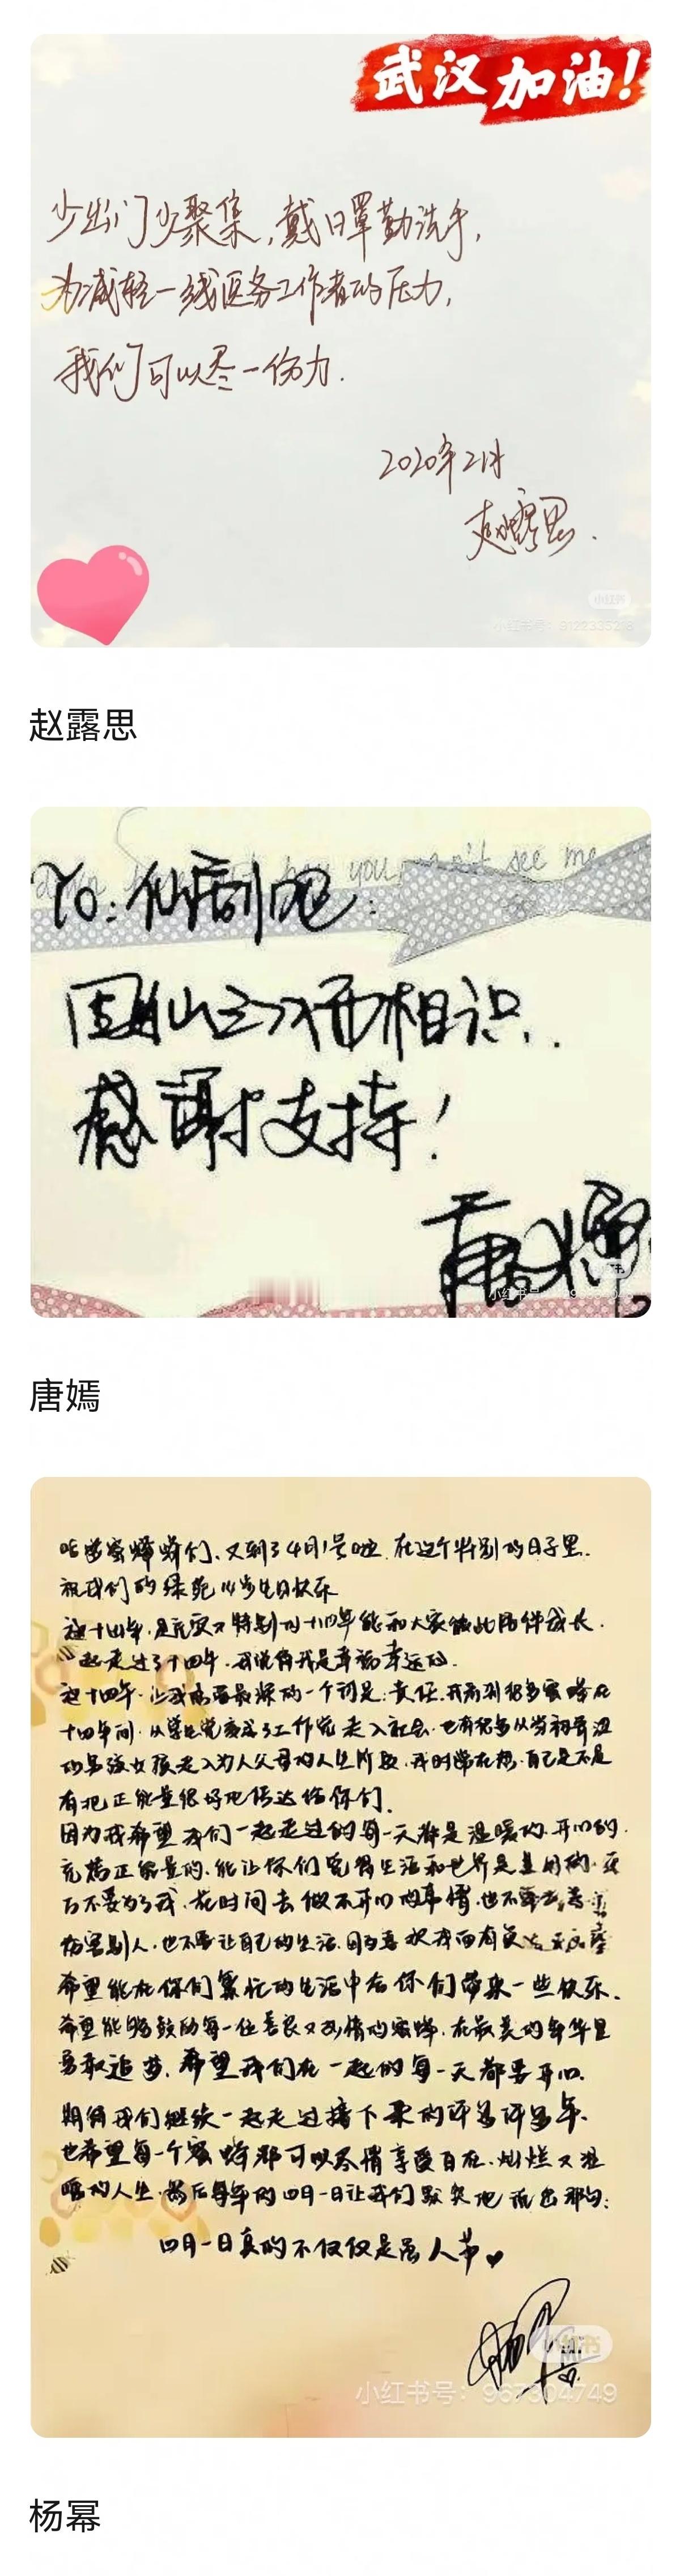 武汉加油!
少出门少聚集,戴口罩勤洗手,
为减轻一线医务工作者的压力,
我们可以尽一份力.
2020年2月
赵露思.
小红书
小红书号: 8122335218
赵露思
you can't see me
To: 仙剑吧:
因仙三而相识..
感谢支持!
唐嫣
小红书号
唐嫣
蜜蜂们、又到了4月1号啦.在这个特别的日子里.
祝我们的绿苑14岁生日快乐
这十四年,是充实又特别的十四年能和大家彼此陪伴成长.
一起走过了十四年.我觉得我是幸福幸运的.
这十四年.让我感受最深的一个词是:责任.我看到很多蜜蜂在
十四年间.从学生党变成了工作党走入社会.也有很多从当初青涩
的男孩女孩走入为人父母的人生阶段.我时常在想.自己是不是
有把正能量很好地传达给你们.
因为我希望我们一起走过的每一天都是温暖的.开心的.
充满正能量的.能让你们觉得生活和世界是美好的.
万不要为了我.花时间去做不开心的事情.也不要去
伤害别人.也不要让自己的生活.因为喜欢我而有负
希望能在你们繁忙的生活中给你们带来一些快乐.
希望能够鼓励每一位善良又热情的蜜蜂.在最美的年华里
勇敢追梦.希望我们在一起的每一天都要开心.
期待我们继续一起走过接下来的许多许多年.
也希望每一个蜜蜂都可以尽情享受自在.灿烂又温
暖的人生.然后每年的四月一日让我们默契地说出那句:
四月一日真的不仅仅是愚人节♥
杨幂
小红书
小红书号: 967304749
杨幂